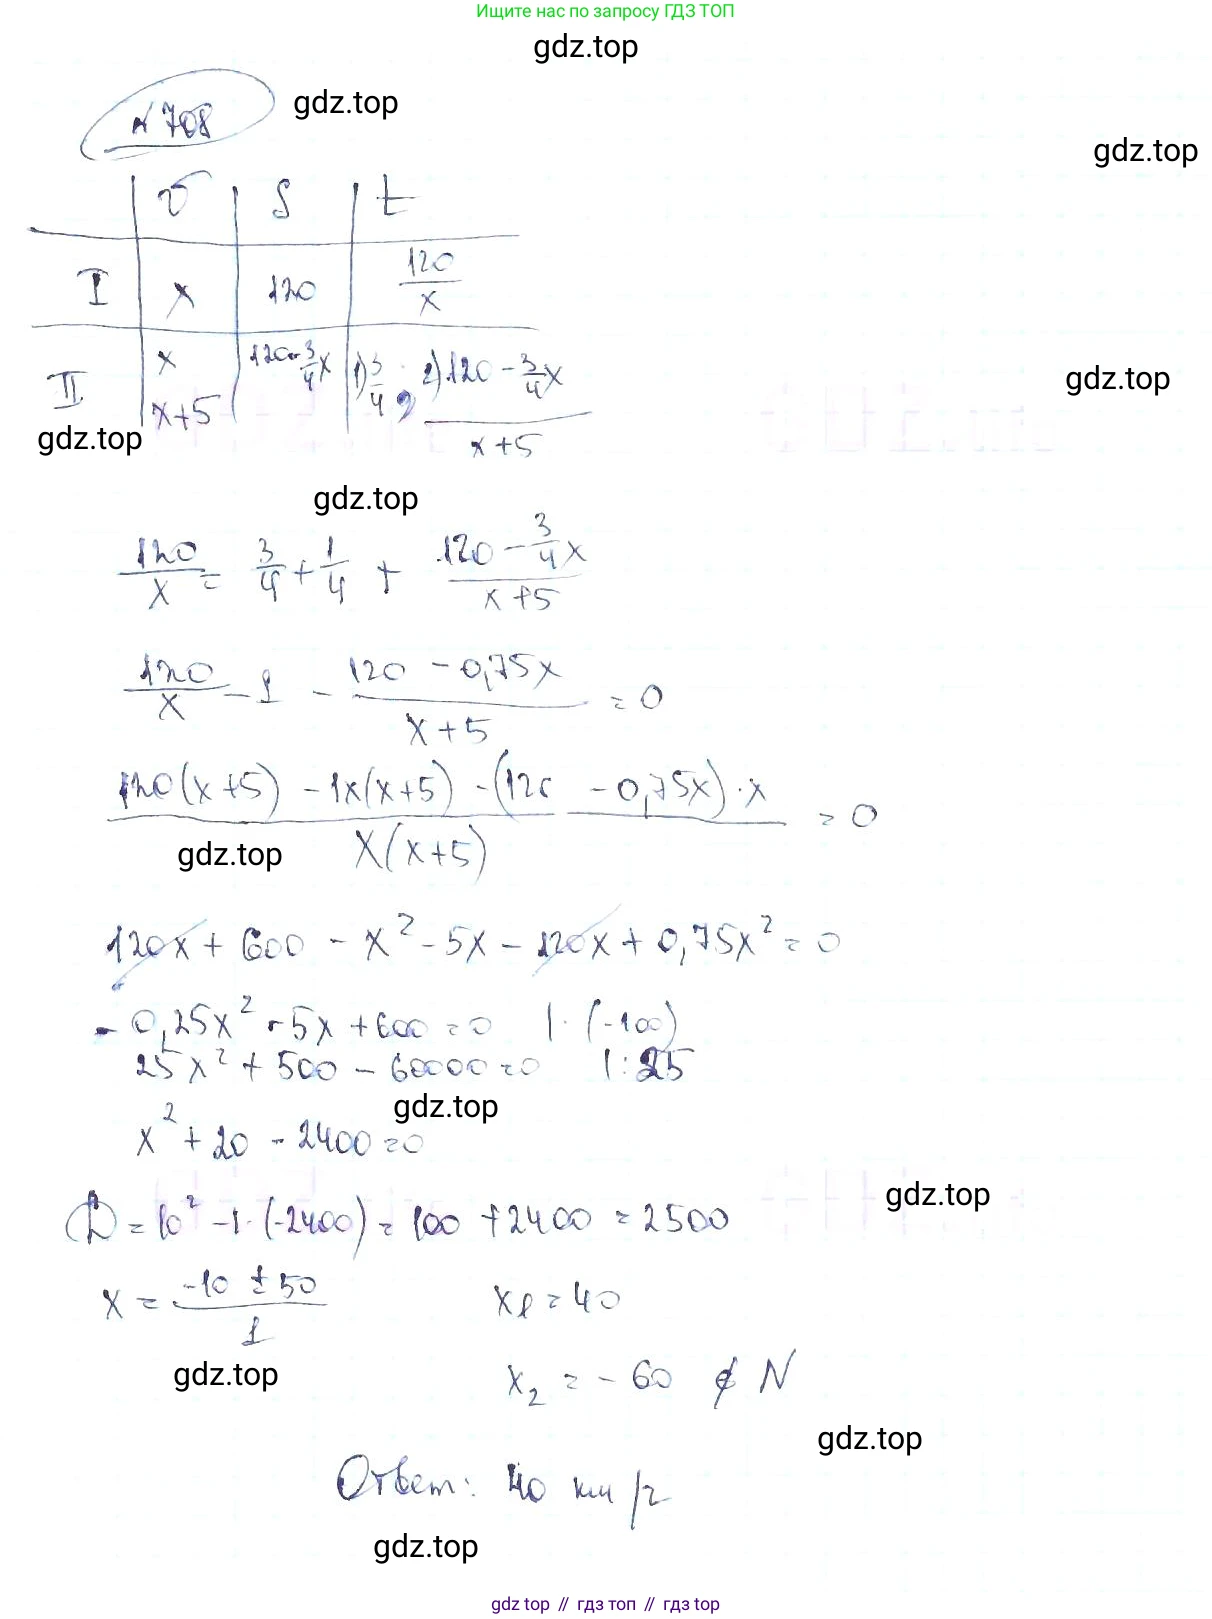 Ищите нас по запросу ГДЗ ТОП
gdz.top
gdz.top
№708
gdz.top
v S t
I x 120 120/x
II x 120-3/4x 1) 3/4, 2) (120-3/4x)/(x+5)
x+5
gdz.top
gdz.top
gdz.top
120/x = 3/4 + 1/4 + (120-3/4x)/(x+5)
120/x - 1 - (120-0,75x)/(x+5) = 0
(120(x+5) - 1x(x+5) - (120 - 0,75x)·x)/(x(x+5)) = 0
gdz.top
120x + 600 - x² - 5x - 120x + 0,75x² = 0
- 0,25x² - 5x + 600 = 0 |· (-100)
25x² + 500 - 60000 = 0 |: 25
gdz.top
x² + 20 - 2400 = 0
gdz.top
D = 10² - 1·(-2400) = 100 + 2400 = 2500
x = (-10 ± 50)/1 x₁ = 40
gdz.top
x₂ = - 60 ∉ N
gdz.top
Ответ: 40 км/ч
gdz.top
gdz top // гдз топ // гдз top